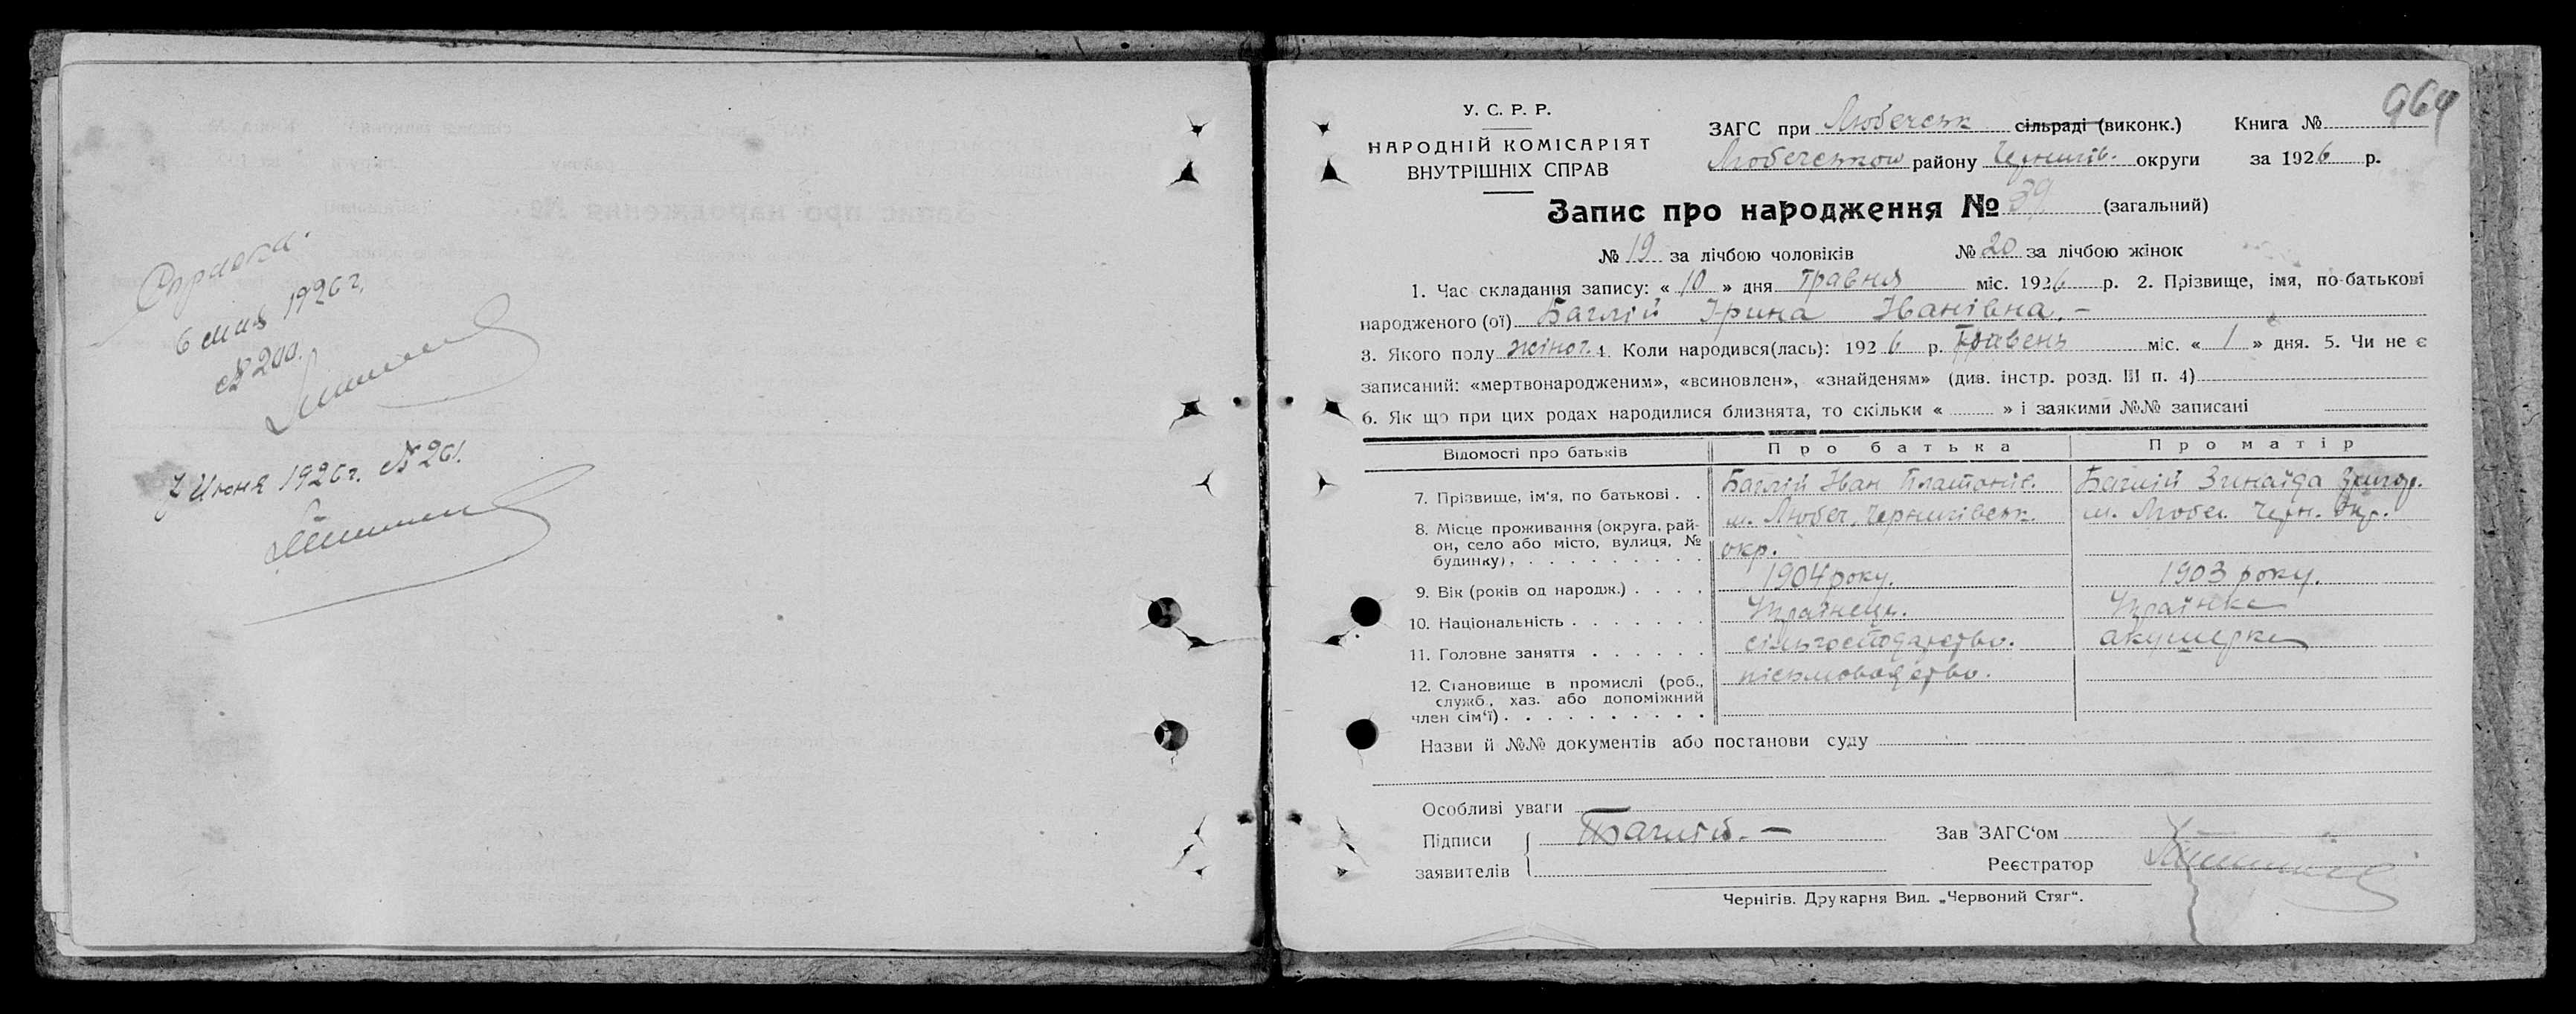 Справка.
6 мая 1926 г.
№ 200.
7 Июня 1926 г. № 261.
964
У. С. Р. Р.
НАРОДНІЙ КОМІСАРІЯТ
ВНУТРІШНІХ СПРАВ
ЗАГС при Любечськ сільраді (виконк.) Книга №
Любечського району Чернигів. округи за 1926 р.
Запис про народження № 39 (загальний)
№ 19 за лічбою чоловіків № 20 за лічбою жінок
1. Час складання запису: « 10 » дня травня міс. 1926 р. 2. Прізвище, імя, по-батькові
народженого (ої) Баглій Ірина Іванівна. –
3. Якого полу жіноч. 4. Коли народився(лась): 1926 р. Травень міс. « 1 » дня. 5. Чи не є
записаний: «мертвонародженим», «всиновлен», «знайденям» (див. інстр. розд. III п. 4)
6. Як що при цих родах народилися близнята, то скільки « » і заякими №№ записані
Відомості про батьків Про батька Про матір
7. Прізвище, ім'я, по батькові . . Баглій Іван Платонів. Баглій Зинаїда Григор.
8. Місце проживання (округа, рай- м. Любеч, Чернигівськ. м. Любеч. Черн. Окр.
он, село або місто, вулиця, № окр.
будинку) . . . . . . . . . .
9. Вік (років од народж.) . . . . 1904 року. 1903 року.
10. Національність . . . . . . . Українець. Українка
11. Головне заняття . . . . . . сільгосподарство. акушерка
12. Становище в промислі (роб., пісьмоводство.
служб., хаз. або допоміжний
член сім'ї) . . . . . . . . . .
Назви й №№ документів або постанови суду
Особливі уваги
Підписи Баглій. – Зав ЗАГС'ом
заявителів Реєстратор
Чернігів. Друкарня Вид. „Червоний Стяг“.